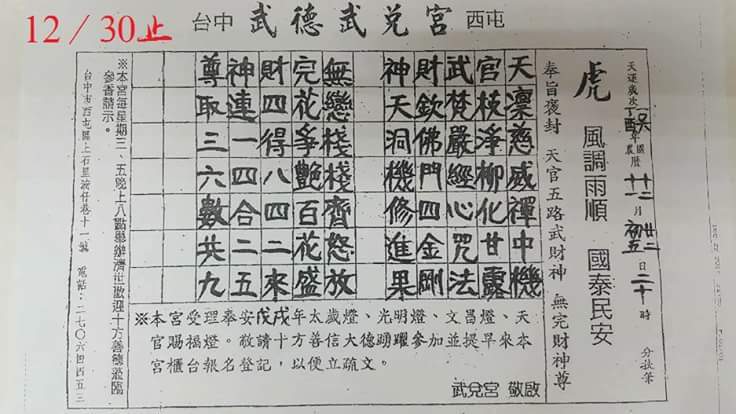 12/30止
台中 武德武兌宮 西屯
天運歲次丁酉年
國曆十二月廿二日
農曆十一月初五日
二十時 分扶筆
虎 風調雨順 國泰民安
奉旨褒封 天官五路武財神 無完財神尊
天稟慈威禪中機
官枝淨柳化甘露
武梵嚴經心咒法
財欽佛門四金剛
神天洞機修進果
無戀棧棧齊怒放
完花爭艷百花盛
財四得八四二來
神連一四合二五
尊取三六數共九
※本宮受理奉安戊戌年太歲燈、光明燈、文昌燈、天
官賜福燈。敬請十方善信大德踴躍參加並提早來本
宮櫃台報名登記,以便立疏文。
武兌宮 敬啟
※本宮每星期三、五晚上八點舉辦濟世歡迎十方善德蒞臨
參香請示。
台中市西屯區上石里 仔巷十一號 電話:二七○六四四五三